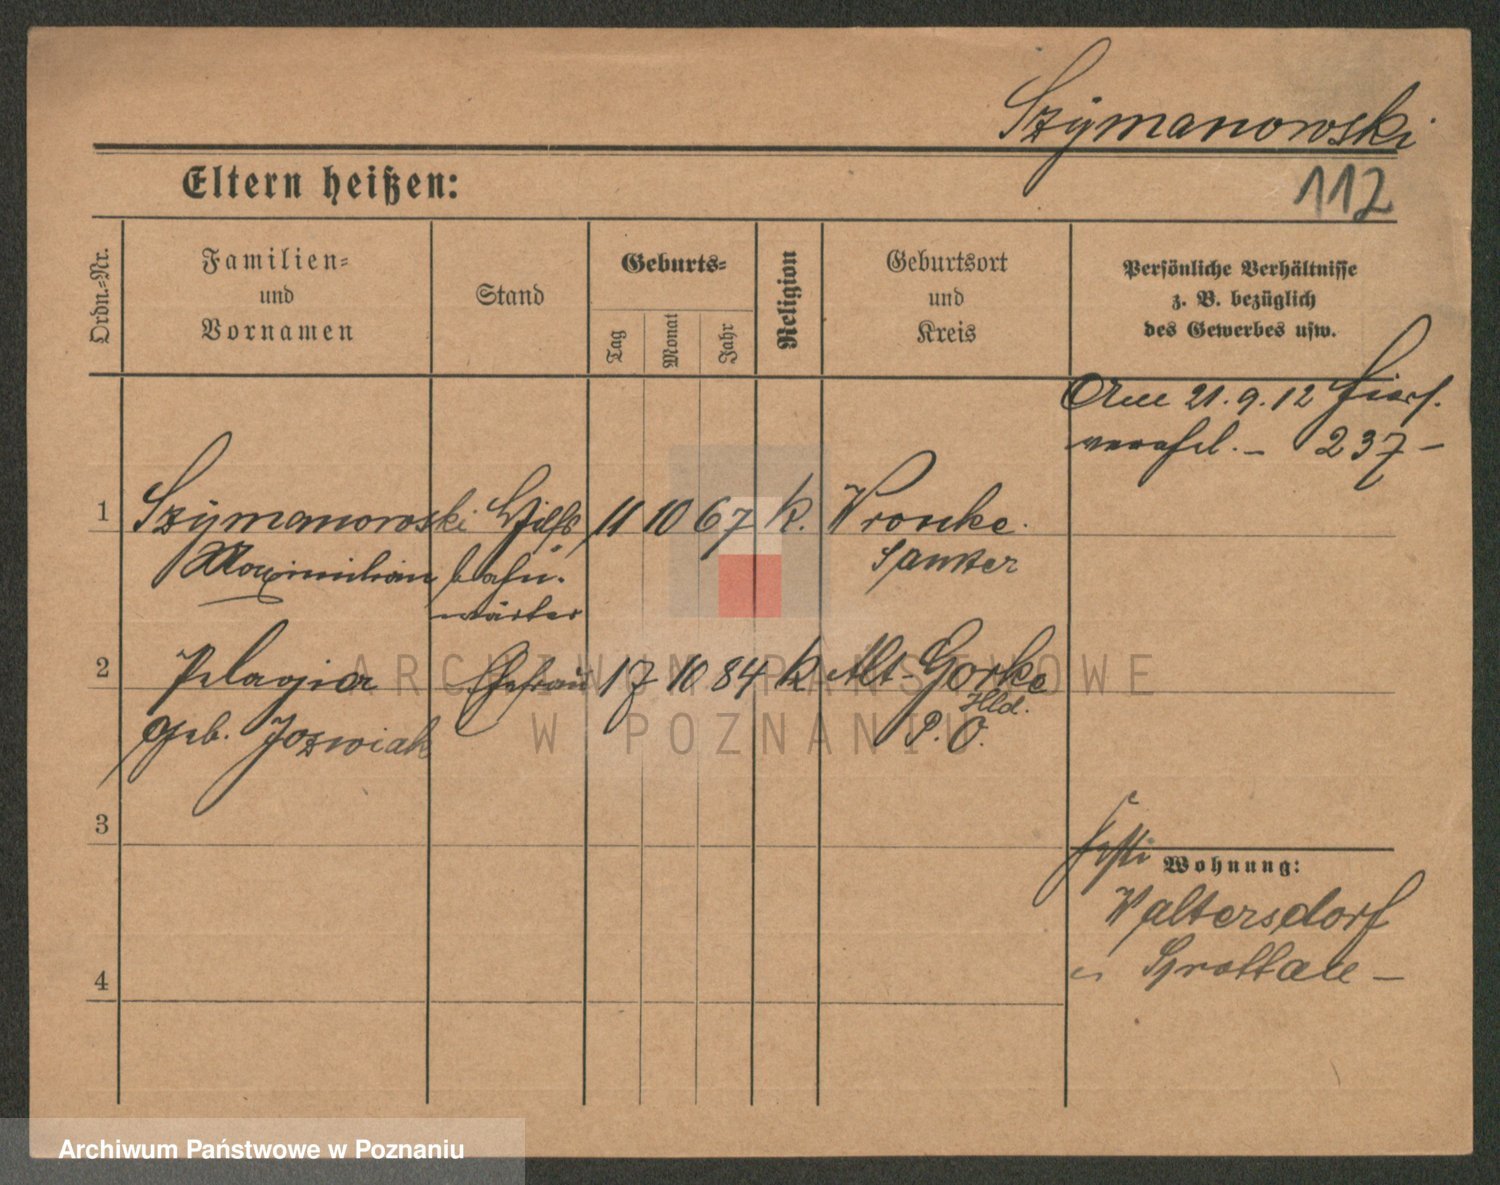 Szymanowski
112
Eltern heißen:
Ordn.-Nr.
Familien-
und
Vornamen
Stand
Geburts-
Tag
Monat
Jahr
Religion
Geburtsort
und
Kreis
Persönliche Verhältnisse
z. B. bezüglich
des Gewerbes usw.
Am 21.9.12 hier
237 -
1 Szymanowski Hilfs 11 10 67 k. Wronke.
Maximilian bahn- Samter
wärter
2 Pelagia Ehefrau 17 10 84 k Alt-Gorke
Hld.
geb. Jozwiak P. O.
3
Wohnung:
Waltersdorf
4
ARCHIWUM PAŃSTWOWE
W POZNANIU
Archiwum Państwowe w Poznaniu